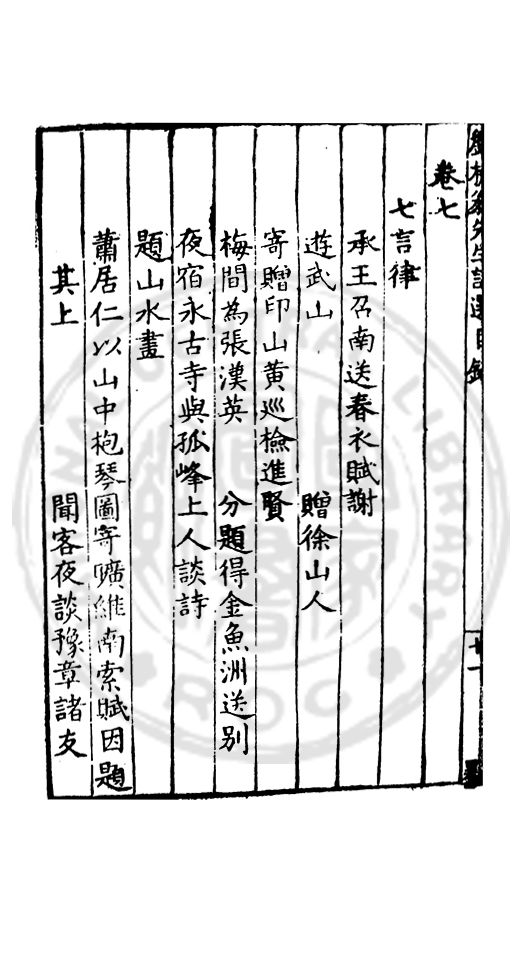 劉槎翁先生詩選目錄
卷七
七言律
承王召南送春衣賦謝
遊武山　贈徐山人
寄贈印山黃巡檢進賢
梅間為張漢英　分題得金魚洲送别
夜宿永古寺與孤峰上人談詩
題山水畫
蕭居仁以山中抱琴圖寄曠維南索賦因題
其上　聞客夜談豫章諸友